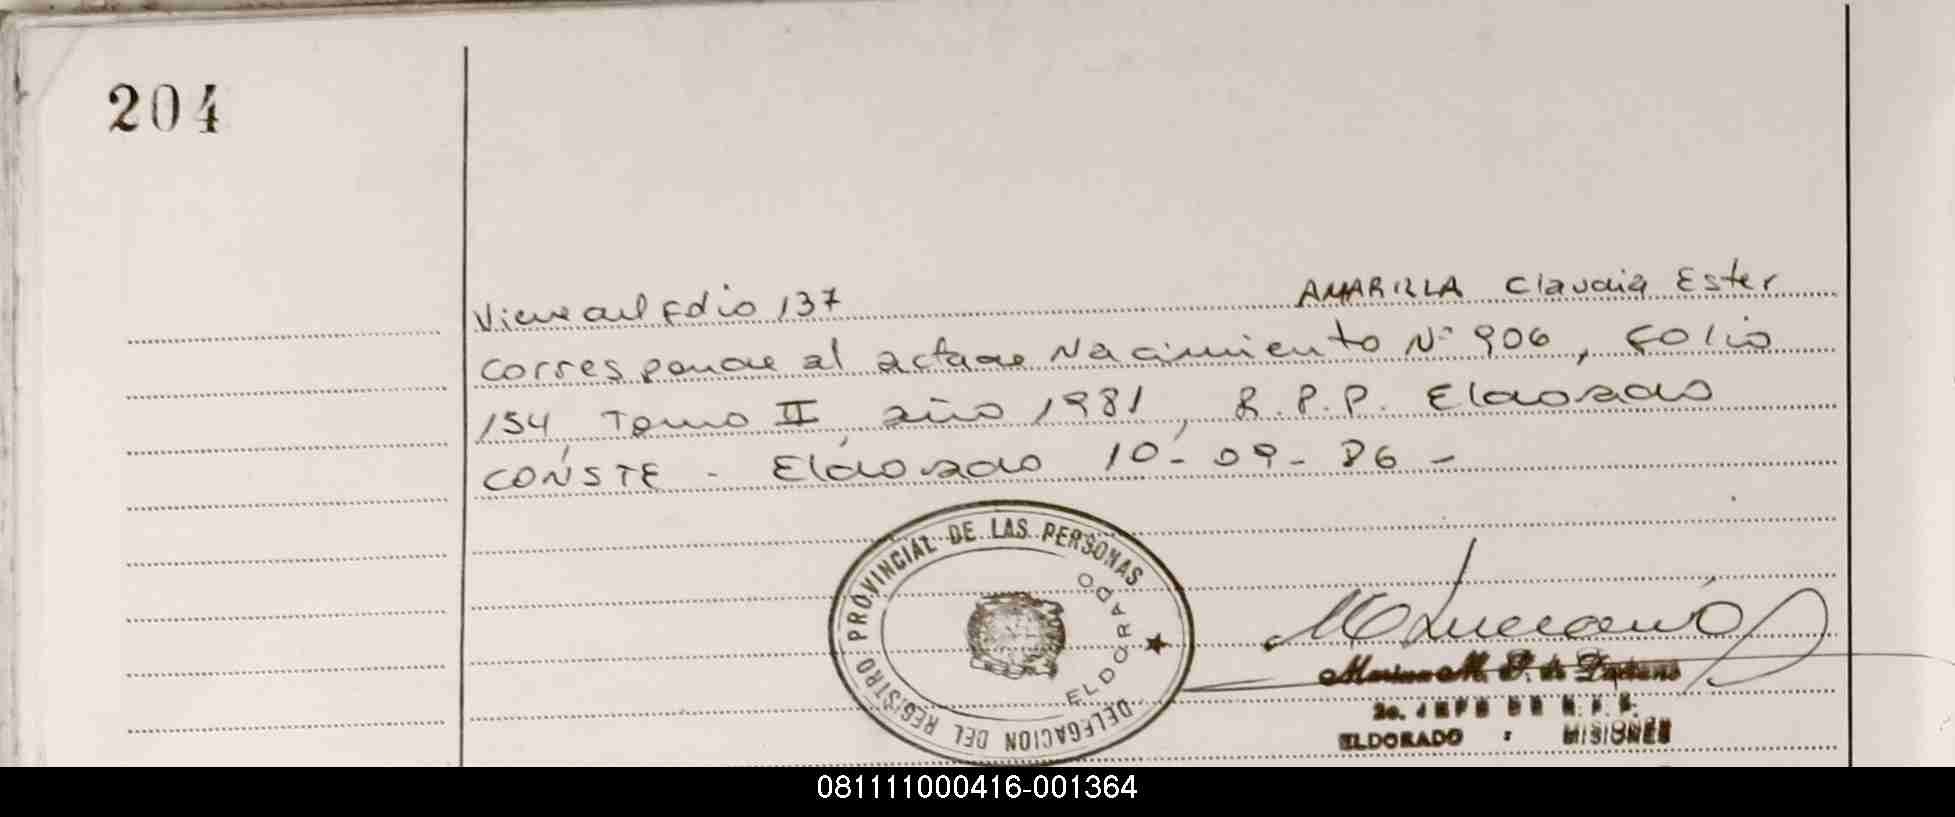 204
Viene del Folio 137 AMARILLA Claudia Ester
corresponde al acta de Nacimiento Nº 906, Folio
154, Tomo II, año 1981, R.P.P. Eldorado
CONSTE - Eldorado 10-09-86-
DELEGACION DEL REGISTRO PROVINCIAL DE LAS PERSONAS
ELDORADO
M. de
2o. JEFE DE R.P.P.
ELDORADO : MISIONES
081111000416-001364